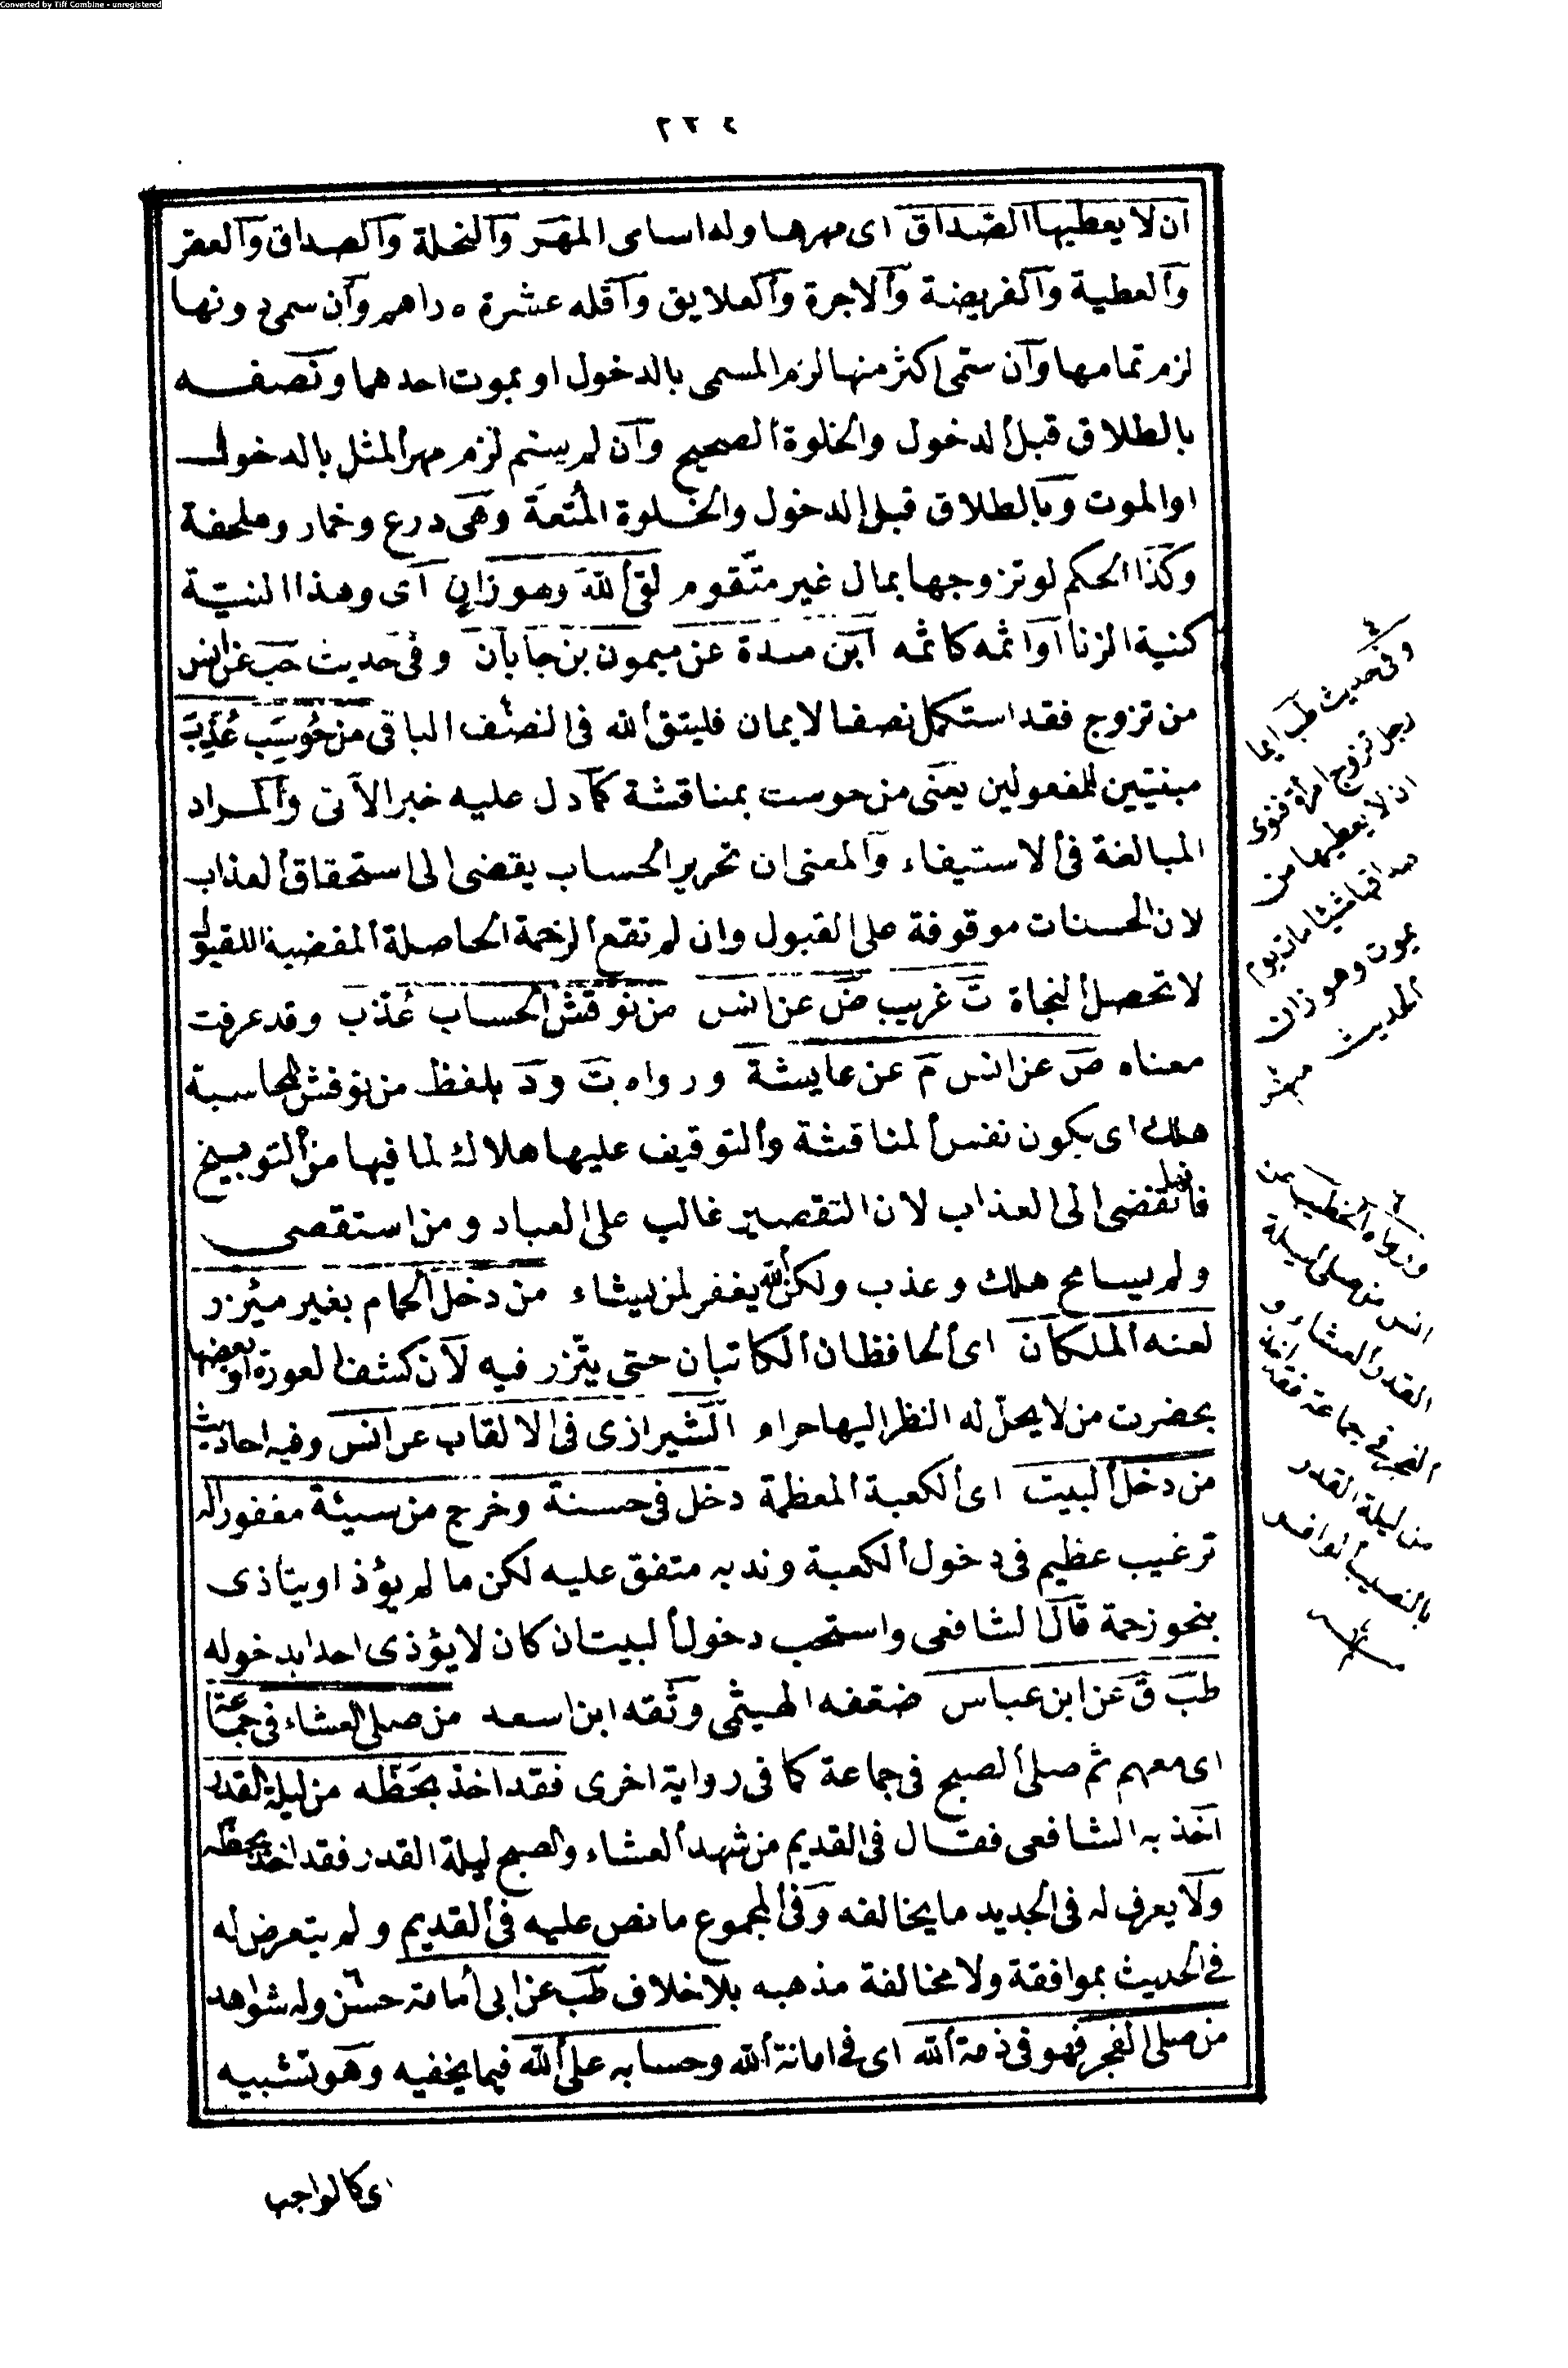 Converted by Tiff Combine - unregistered
٢٣٤
ان لا يعطيها الصداق اى مهرها وله اسامى المهر والنحلة والصداق والعقر
والعطية والفريضة والاجرة والعلايق واقله عشرة دراهم وان سمى دونها
لزم تمامها وان سمى اكثر منها لزم المسمى بالدخول او بموت احدهما ونصفه
بالطلاق قبل الدخول والخلوة الصحيح وان لم يسم لزم مهر المثل بالدخول
او الموت وبالطلاق قبل الدخول والخلوة المتعة وهى درع وخمار وملحفة
وكذا الحكم لو تزوجها بمال غير متقوم لقى الله وهو زان اى وهذا النية
كنية الزنا او اثمه كاثمه ابن مندة عن ميمون بن جابان وفى حديث حب عن انس
من تزوج فقد استكمل نصف الايمان فليتق الله فى النصف الباقى من حُوسِبَ عُذِّبَ
مبنيتين للمفعولين يعنى من حوست بمناقشة كما دل عليه خبر الآتى والمراد
المبالغة فى الاستيفاء والمعنى ان تحرير الحساب يقضى الى استحقاق العذاب
لان الحسنات موقوفة على القبول وان لم تقع الرخمة الحاصلة المفضية للقبول
لا تحصل النجاة ت غريب ض عن انس من نوقش الحساب عُذب وقد عرفت
معناه ص عن انس م عن عايشة ورواه ت ود بلفظ من نوقش المحاسبة
هلك اى يكون نفس المناقشة والتوقيف عليها هلاك لما فيها من التوبيخ
فانها تفضى الى العذاب لان التقصير غالب على العباد ومن استقصى
ولم يسامح هلك وعذب ولكن الله يغفر لمن يشاء من دخل الحمام بغير مئزر
لعنه الملكان اى الحافظان الكاتبان حتى يتزر فيه لان كشف العورة او بعضها
بحضرت من لا يحل له النظر اليها حرام الشيرازى فى الالقاب عن انس وفيه احاديث
من دخل البيت اى الكعبة المعظمة دخل فى حسنة وخرج من سيئة مغفورا له
ترغيب عظيم فى دخول الكعبة وندبه متفق عليه لكن ما لم يؤذ او يتأذى
بنحو زحمة قال الشافعى واستحب دخول البيت ان كان لا يؤذى احدا بدخوله
طب ق عن ابن عباس ضعفه الهيثمى وثقه ابن اسعد من صلى العشاء فى جماعة
اى معهم ثم صلى الصبح فى جماعة كما فى رواية اخرى فقد اخذ بحظه من ليلة القدر
اخذ به الشافعى فقال فى القديم من شهد العشاء والصبح ليلة القدر فقد اخذ بحظه
ولا يعرف له فى الجديد ما يخالفه وفى المجموع ما نص عليه فى القديم ولم يتعرض له
فى الحديث بموافقة ولا مخالفة مذهبه بلا خلاف طب عن ابى أمامة حسن وله شواهد
من صلى الفجر فهو فى ذمة الله اى فى امانة الله وحسابه على الله فيما يخفيه وهو تشبيه
اى كالواجب
وفى حديث طب ايما
رجل تزوج امرأة فنوى
ان لا يعطيها من
صداقها شيئا مات يوم
يموت وهو زان
الحديث
ورواه الخطيب عن
انس من صلى ليلة
القدر العشاء و
الفجر فى جماعة فقد اخذ
من ليلة القدر
بالنصيب الوافر